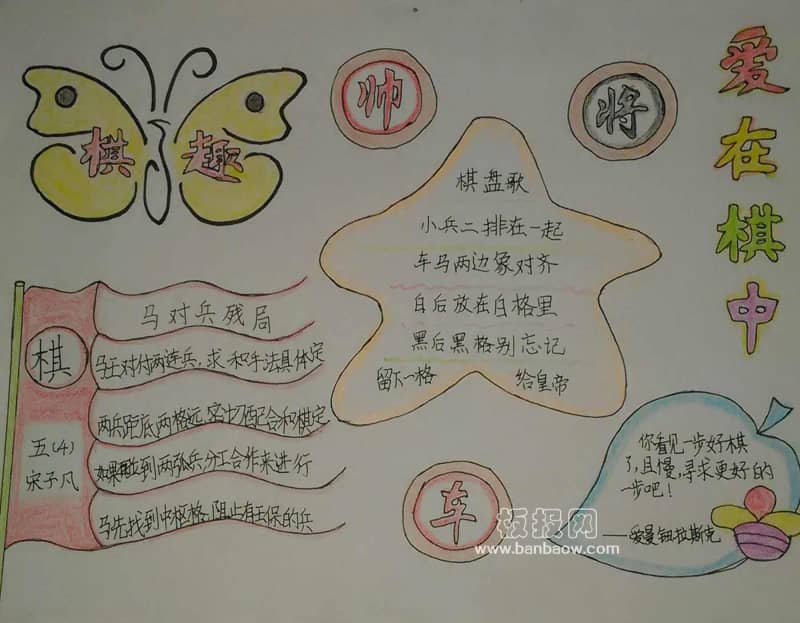 棋趣
帅
将
爱在棋中
棋盘歌
小兵二排在一起
车马两边象对齐
白后放在白格里
黑后黑格别忘记
留下一格 给皇帝
棋
五(4)
宋子凡
马对兵残局
马王对付两连兵，求和手法具体定
两兵距底两格远，密切配合和棋定
如果再找到两孤兵，分工合作来进行
马先找到中枢格，阻止有王保的兵
车
你看见一步好棋
了，且慢，寻求更好的
一步吧！
——爱曼钮拉斯克
板报网
www.banbaow.com